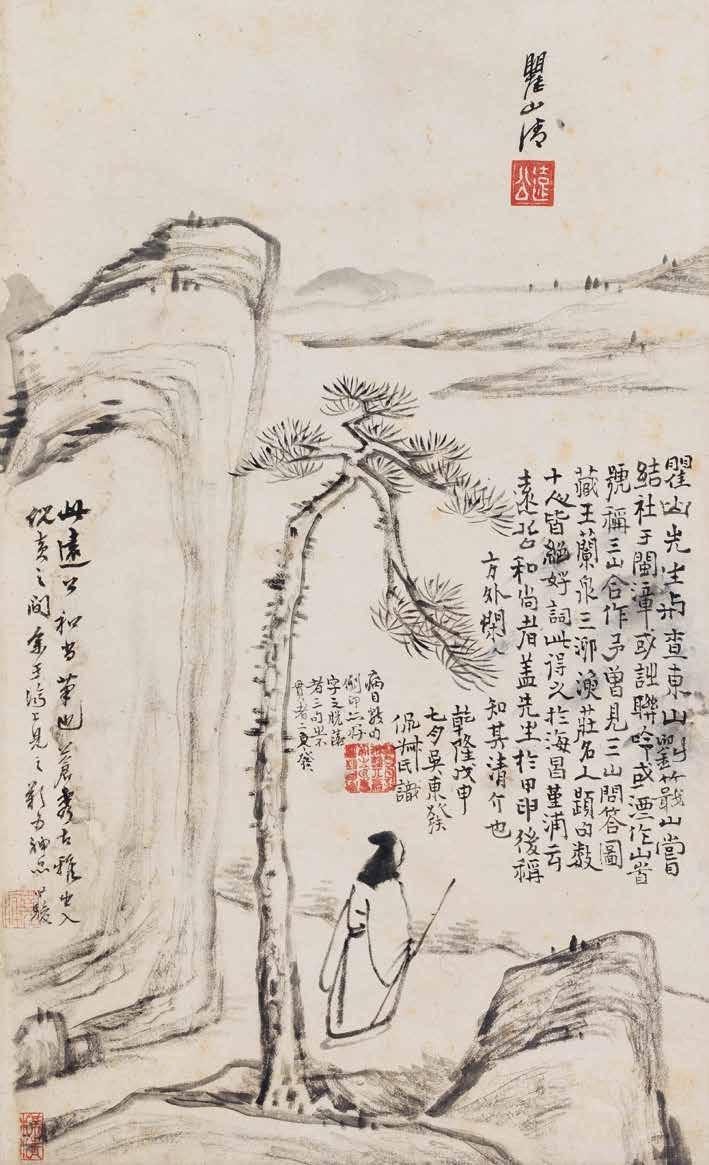 瞿山清
遠公
瞿山先生與查東山劉蕺山嘗
結社于閩漳或詿聯吟或酒作山者
號稱三山合作予曾見三山問答圖
藏王蘭泉三泖漁莊名人題句數
十人皆絕妙詞此得之於海昌堇浦云
遠公和尚者蓋先生於甲申後稱
方外
知其清介也
乾隆戊申
七夕吳東發
侃叔氏識
病目
倒印二
字之脫落
者三句
此遠公和尚筆也蒼秀古雅出入
倪黃之間余于海上見之歎為神品